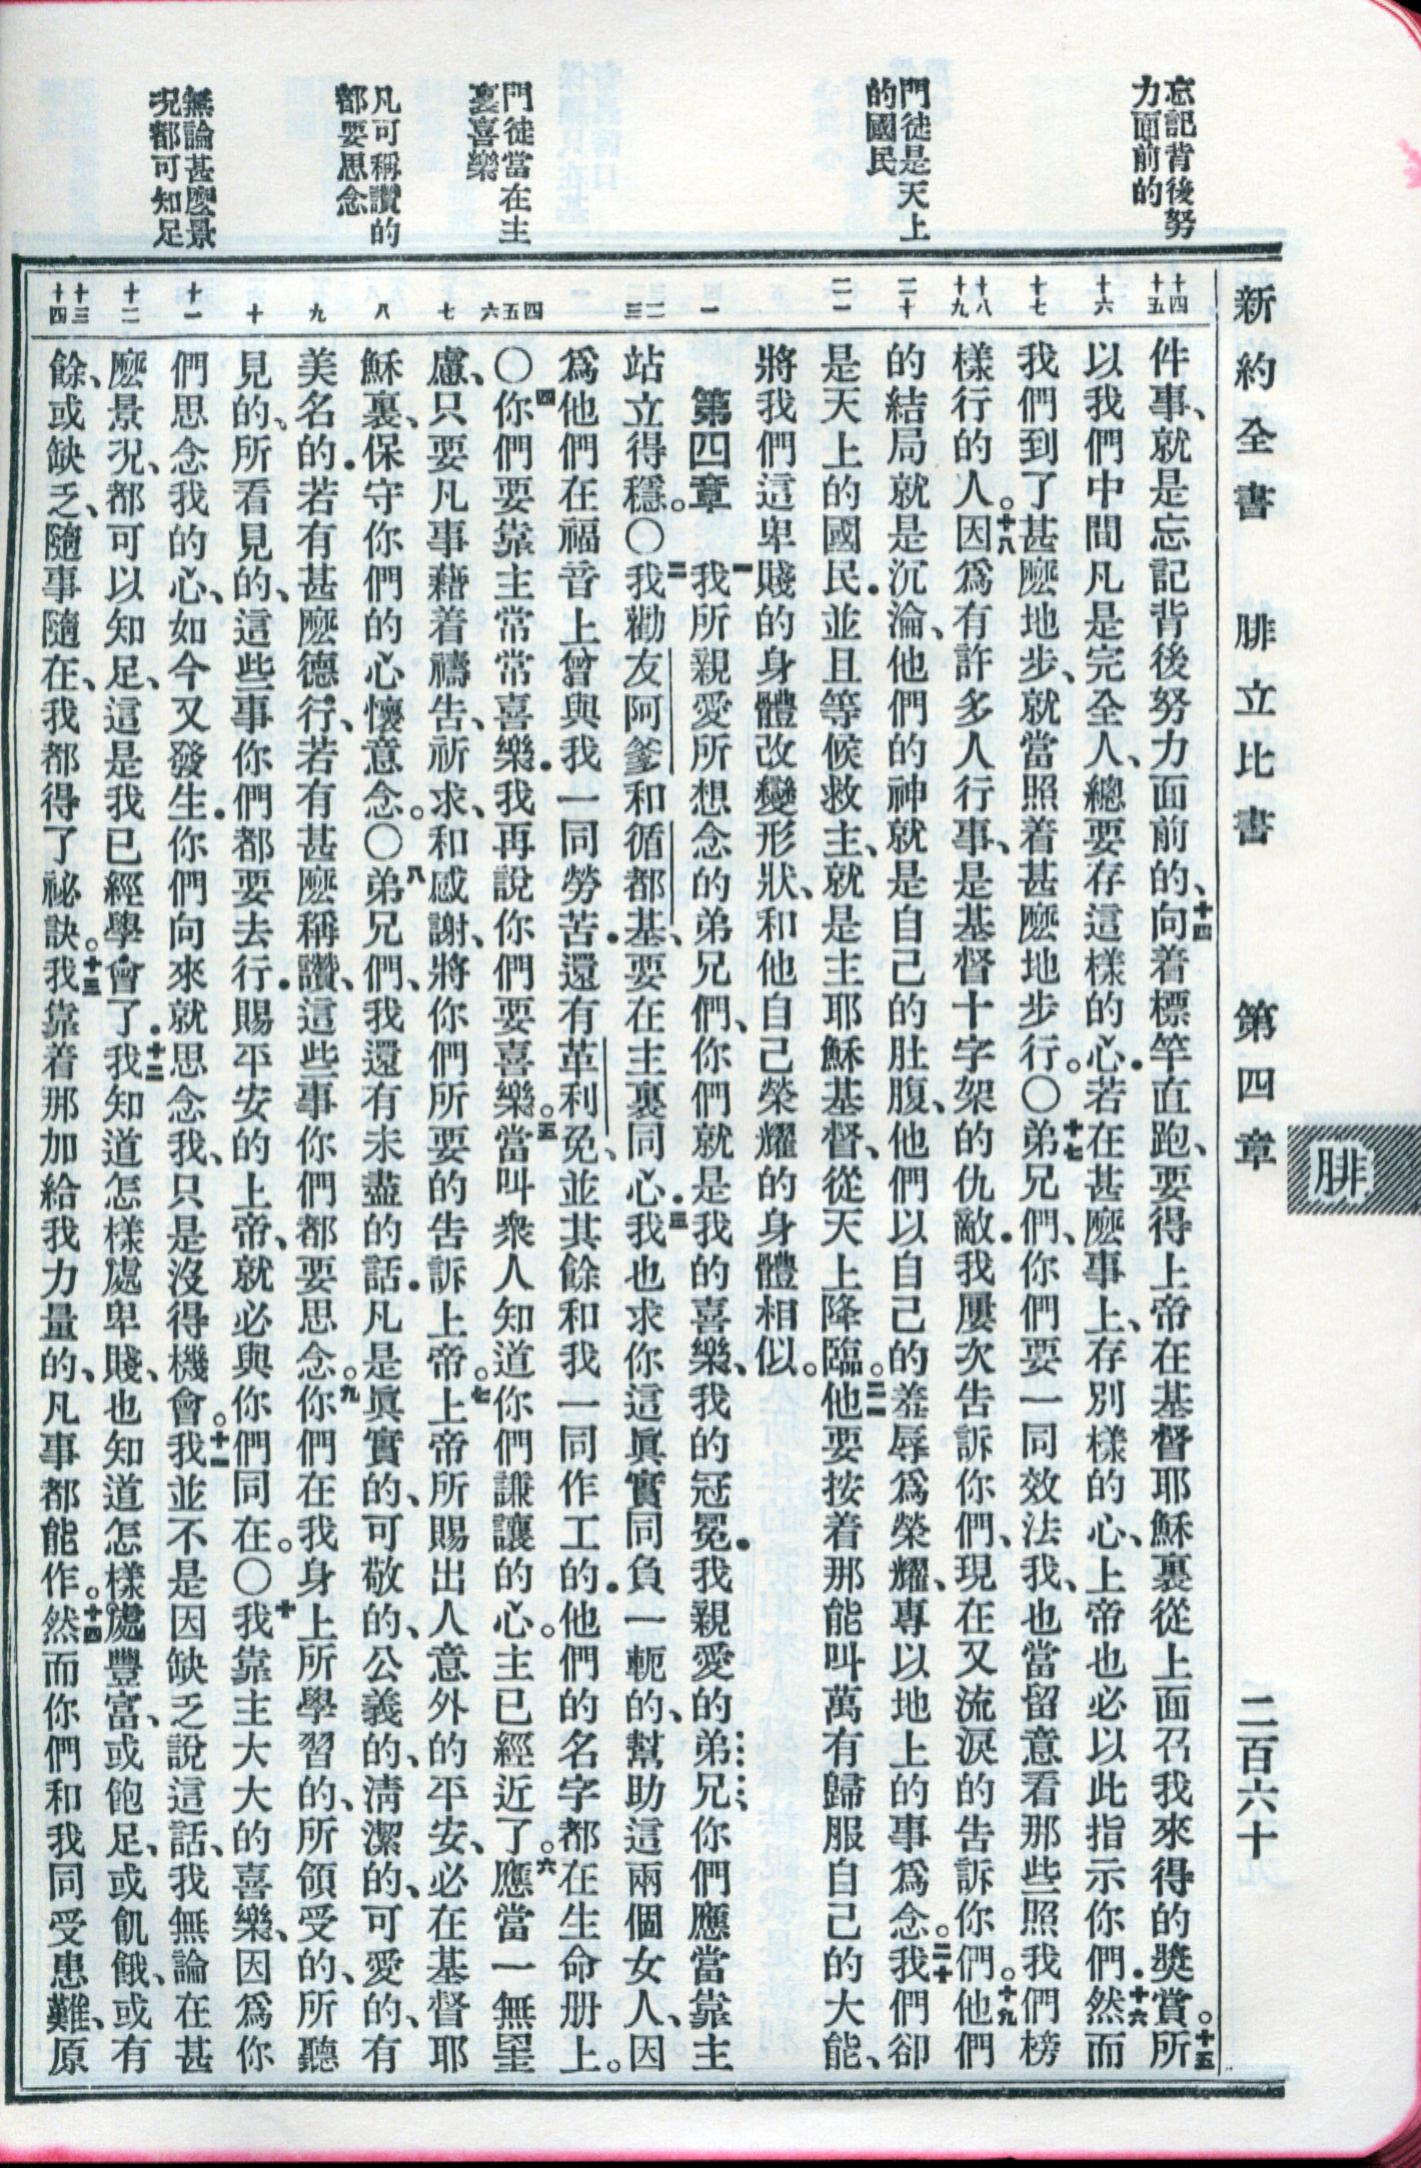 新約全書 腓立比書 第四章 二百六十
腓
忘記背後努
力面前的
門徒是天上
的國民
門徒當在主
裏喜樂
凡可稱讚的
都要思念
無論甚麼景
況都可知足
十四
十五
十六
十七
十八
十九
二十
二一
一
二
三
四
五
六
七
八
九
十
十一
十二
十三
十四
件事、就是忘記背後努力面前的、十四向着標竿直跑、要得上帝在基督耶穌裏從上面召我來得的獎賞。十五所
以我們中間凡是完全人、總要存這樣的心．若在甚麼事上、存別樣的心、上帝也必以此指示你們．十六然而
我們到了甚麼地步、就當照着甚麼地步行。〇十七弟兄們、你們要一同效法我、也當留意看那些照我們榜
樣行的人。十八因爲有許多人行事、是基督十字架的仇敵．我屢次告訴你們、現在又流淚的告訴你們。十九他們
的結局就是沉淪、他們的神就是自己的肚腹、他們以自己的羞辱爲榮耀、專以地上的事爲念。二十我們卻
是天上的國民．並且等候救主、就是主耶穌基督、從天上降臨。二一他要按着那能叫萬有歸服自己的大能、
將我們這卑賤的身體改變形狀、和他自己榮耀的身體相似。
第四章 一我所親愛所想念的弟兄們、你們就是我的喜樂、我的冠冕．我親愛的弟兄、你們應當靠主
站立得穩。〇二我勸友阿爹和循都基、要在主裏同心．三我也求你這眞實同負一軛的、幫助這兩個女人、因
爲他們在福音上曾與我一同勞苦．還有革利免、並其餘和我一同作工的．他們的名字都在生命册上。
〇四你們要靠主常常喜樂．我再說你們要喜樂。五當叫衆人知道你們謙讓的心。主已經近了。六應當一無罣
慮、只要凡事藉着禱告、祈求、和感謝、將你們所要的告訴上帝。七上帝所賜出人意外的平安、必在基督耶
穌裏、保守你們的心懷意念。〇八弟兄們、我還有未盡的話．凡是眞實的、可敬的、公義的、淸潔的、可愛的、有
美名的．若有甚麼德行、若有甚麼稱讚、這些事你們都要思念。九你們在我身上所學習的、所領受的、所聽
見的、所看見的、這些事你們都要去行．賜平安的上帝、就必與你們同在。〇十我靠主大大的喜樂、因爲你
們思念我的心、如今又發生．你們向來就思念我、只是沒得機會。十一我並不是因缺乏說這話、我無論在甚
麼景況、都可以知足、這是我已經學會了．十二我知道怎樣處卑賤、也知道怎樣處豐富、或飽足、或飢餓、或有
餘、或缺乏、隨事隨在、我都得了祕訣。十三我靠着那加給我力量的、凡事都能作。十四然而你們和我同受患難、原